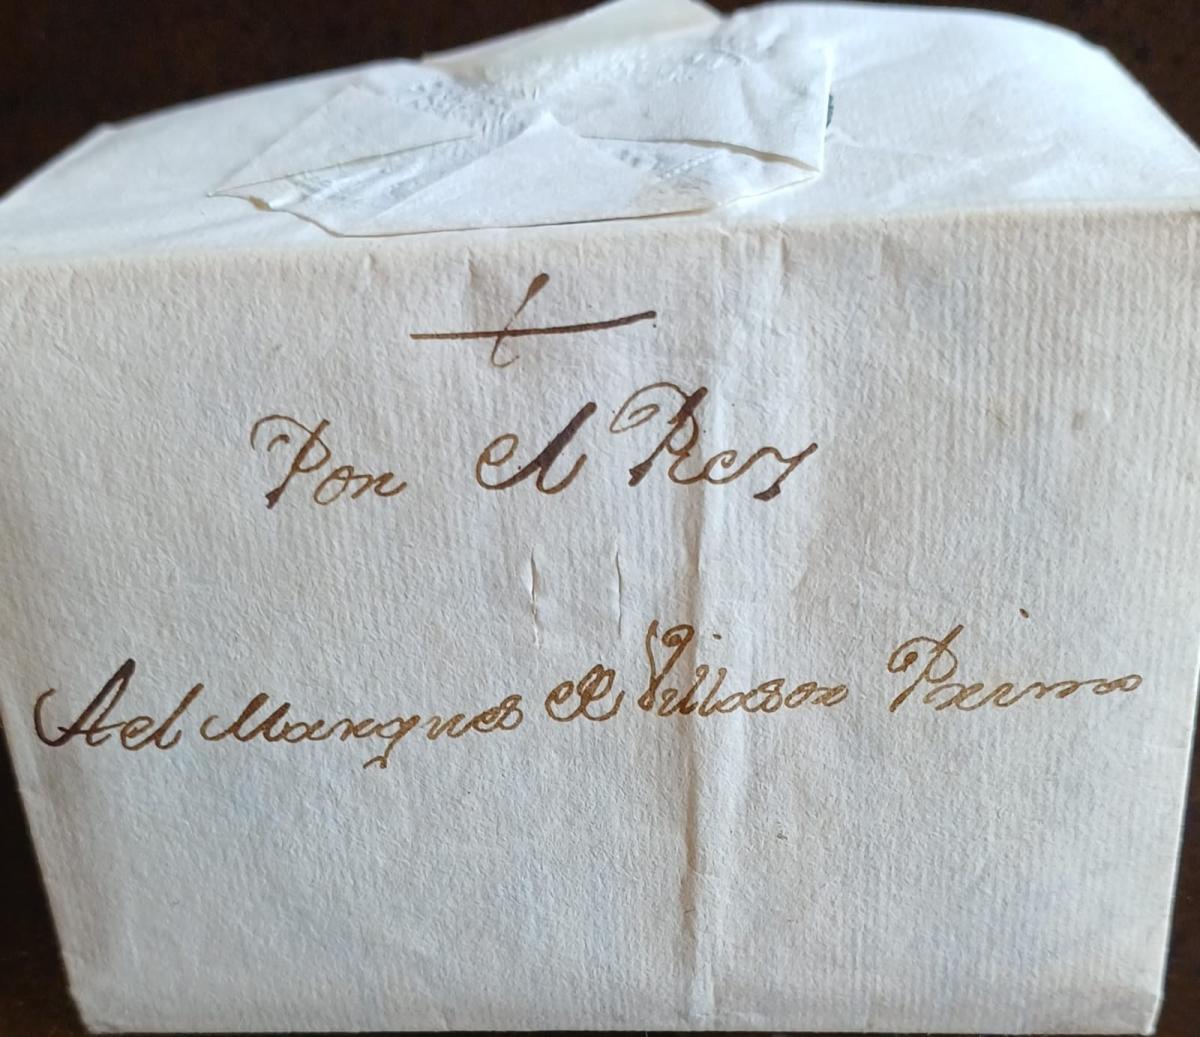 †
Por el Rey
Ael Marques de Villasor Primo